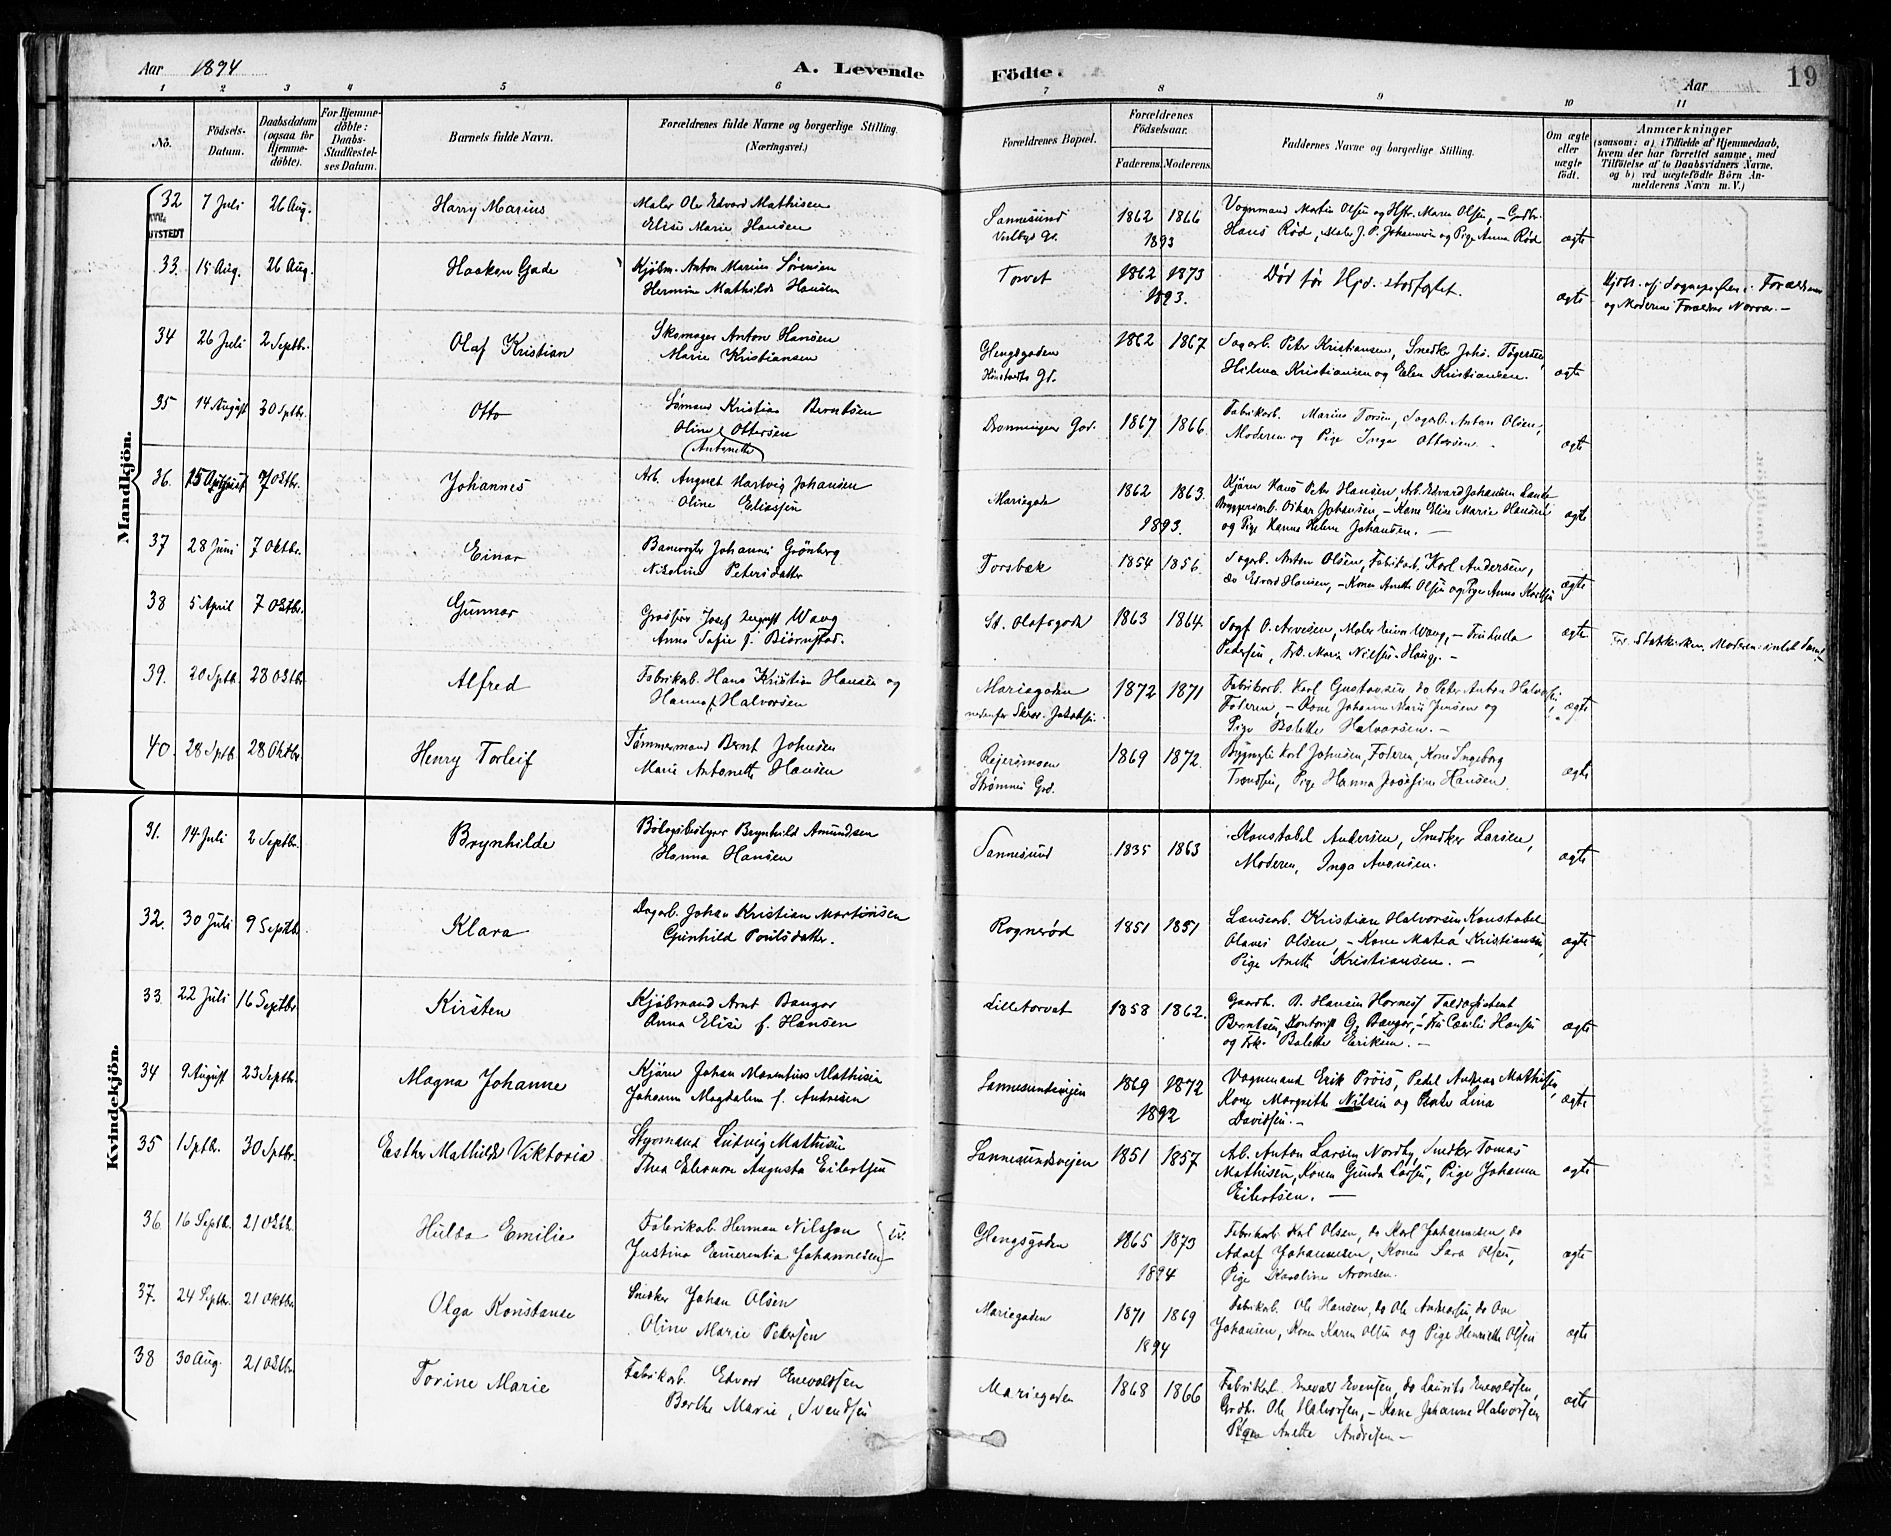 Aar 1894
A. Levende Födte.
Aar
19
1 2 3 4 5 6 7 8 9 10 11
No.
Födsels-Datum.
Daabsdatum (ogsaa for Hjemme-döbte).
For Hjemme-döbte: Daabs-Stadfæstel-ses Datum.
Barnets fulde Navn.
Forældrenes fulde Navne og borgerlige Stilling. (Næringsvei.)
Forældrenes Bopæl.
Forældrenes Födselsaar.
Faderens. Moderens.
Faddernes Navne og borgerlige Stilling.
Om ægte eller uægte födt.
Anmærkninger
(saasom: a) i Tilfælde af Hjemmedaab, hvem der har forrettet samme, med Tilföielse af to Daabsvidners Navne, og b) ved uegtefödte Börn An-melderens Navn m. V.)
Mandkjön.
32 7 Juli 26 Aug. Harry Marius
UTSTEDT
Maler Ole Edvard Mathisen
Elise Marie Hansen
Sannesund
1862 1866
1893
Vognmand Martin Olsen og Hstr. Maren Olsen, - Grdbr.
Hans Rød, Maler J. P. Johannesen og Pige Anna Rød
ægte
33. 15 Aug. 26 Aug. Haakon Gade
Kjøbm. Anton Marius Sørensen
Hermine Mathilde Hansen
Torvet
1862 1873
1893.
Død før Hjd. stadfæstet.
ægte
34 26 Juli 2 Septbr. Olaf Kristian
Skomager Anton Hansen
Marie Kristiansen
Glengsgaden
1862 1867
Dagarb. Peter Kristiansen, Snedker Johs.
Hilma Kristiansen og Elen Kristiansen.
ægte
35 14 August 30 Sptbr. Otto
Sømand Kristian Berntsen
Oline Ottersen
(Antonette)
Dronningens Gad.
1867 1866.
Fabrikarb. Marius Torsen, Dagarb. Anton Olsen,
Moderen og Pige Inga Ottersen.
ægte
36. 15 August 7 Oktbr. Johannes
Arb. August Hartvig Johansen
Oline Eliassen
Mariegade
1862 1863.
1893.
Kjører Hans Peter Hansen, Arb. Edvard Johansen Lande
Bryggeriarb. Oskar Johansen, - Kone Elise Marie Hansen
og Pige Hanne Helene Johansen. -
ægte
37 28 Juni 7 Oktbr. Einar
Banevogter Johannes Grønberg
Nikoline Petersdatter
Torsbæk
1854 1856.
Dagarb. Anton Olsen, Fabrikarb. Karl Andersen,
do Edvard Hansen, - Konen Anette Olsen og Pige Anna
ægte
38 5 April 7 Oktbr. Gunnar
Grosserer Josef August Wang
Anna Sofie f. Bjørnstad.
St. Olafsgade
1863 1864.
Sagf. O. Arvesen, Maler Einar Wang, - Fru Hulda
Petersen, Frk. Maria Nielsen-Hauge. -
ægte
39. 20 Sptb. 28 Oktbr. Alfred
Fabrikarb. Hans Kristian Hansen og
Hanna f. Halvorsen
Mariegaden
nedenfor Skræd. Jakobsen.
1872 1871
Fabrikarb. Karl Gustavsen, do Peter Anton Halvorsen,
Faderen, - Kone Johanne Marie Jensen og
Pige Bolette Halvorsen. -
ægte
40. 28 Sptb. 28 Oktbr. Henry Torleif
Tømmermand Bernt Johnsen
Marie Antonette Hansen
Strømnes Grd.
1869 1872.
Karl Johnsen, Faderen, Kone Ingeborg
Trondsen, Pige Hanna Josefine Hansen
ægte
Kvindekjön.
31. 14 Juli 2 Septbr. Brynhilde
Bolagsbestyrer Brynhild Amundsen
Hanna Hansen
Sannesund
1835 1863
Konstabel Andersen, Snedker Larsen,
Moderen, Inga Aronsen.
ægte
32. 30 Juli 9 Septbr. Klara
Dagarb. Johan Kristian Martinsen
Gunhild Poulsdatter.
Rognerød
1851 1851
Lænsearb. Kristian Halvorsen, Konstabel
Olaves Olsen, - Kone Matea Kristiansen,
Pige Anette Kristiansen. -
ægte
33. 22 Juli 16 Septbr. Kirsten
Kjøbmand Arnt Bangor
Anna Elise f. Hansen
Lilletorvet
1858 1862.
Gaardb. B. Hansen Hornes, Toldassistent
Berntsen, Kontorist G. Bangor, - Fru Cæcilie Hansen
og Frk. Bolette Eriksen. -
ægte
34 9 August 23 Septbr. Magna Johanne
Kjører Johan Marentius Mathisen
Johanne Magdalene f. Andresen
Sannesundsveien
1869 1872
1892
Vognmand Erik Prøis, Pedel Andreas Mathisen,
Kone Margrethe Nilsen og Lina
Davidsen. -
ægte
35 1 Sptbr. 30 Sptbr. Esther Mathilde Viktoria
Styrmand Ludvig Mathisen
Thea Eleonore Augusta Eilertsen
Sannesundsvejen
1851 1857
Ab. Anton Larsen Nordby, Snedker Tomas
Mathisen, Konen Gunda Larsen, Pige Johanne
Eilertsen. -
ægte
36. 16 Septb. 21 Oktb. Hulda Emilie
Fabrikarb. Herman Nilssen
Justina Emerentia Johannesen
Glengsgaden
1865 1873
1894
Fabrikarb. Karl Olsen, do Karl Johannesen, do
Adolf Johannesen, Konen Sara Olsen,
Pige Karoline Aronsen.
ægte
37. 24 Septbr. 21 Oktbr. Olga Konstanse
Snedker Johan Olsen
Oline Marie Petersen
Mariegaden
1871 1869
1894
Fabrikarb. Ole Hansen, do Ole Andersen, do Ove
Johansen, Konen Karen Olsen og Pige Henriette Olsen
ægte
38 30 Aug. 21 Oktbr. Torine Marie
Fabrikarb. Edvard Enevoldsen
Berthe Marie Svendsen
Mariegaden
1868 1866
Fabrikarb. Enevald Evensen, do Laurits Enevoldsen,
Grdb. Ole Halvorsen, - Kone Johanne Halvorsen
Pigen Anette Andresen -
ægte